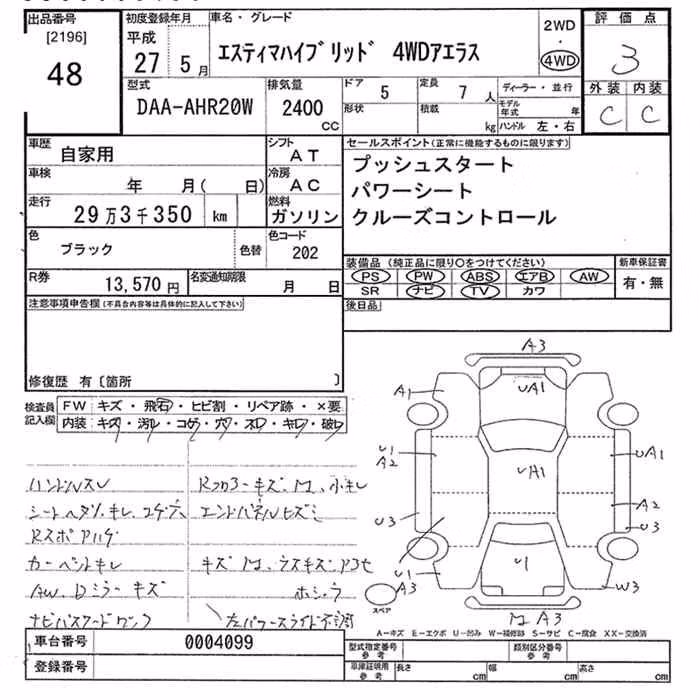 出品番号 初度登録年月 車名・グレード 2WD 評価点
[2196] 平成 ・
48 27 5月 エスティマハイブリッド 4WDアエラス 4WD 3
型式 排気量 ドア 5 定員 7人 ディーラー・並行 外装 内装
DAA-AHR20W 2400 CC 形状 積載 kg モデル年式 年 C C
ハンドル 左・右
車歴 自家用 シフト AT セールスポイント(正常に機能するものに限ります)
車検 年 月( 日) 冷房 AC プッシュスタート
パワーシート
走行 29万3千350 km 燃料 ガソリン クルーズコントロール
色 ブラック 色替 色コード 202
装備品(純正品に限り○をつけてください) 新車保証書
R券 13,570円 名変通知期限 月 日 PS PW ABS エアB AW 有・無
SR ナビ TV カワ
注意事項申告欄(不具合内容等は具体的に記入して下さい) 後日品
修復歴 有〔箇所 〕
検査員記入欄 FW キズ・飛石・ヒビ割・リペア跡・×要
内装 キズ・汚レ・コゲ・穴・スレ・キレ・破レ
A3
A1 UA1
U1 A2 UA1 UA1
A2
U3 U3
U1 A3 U1 W3
A3
スペア
ハンドルスレ キズ、
シートヘタリ、キレ、コゲ穴 エンドパネルヒズミ
Rスポ Pハゲ
カーペットキレ キズ
AW、Dミラーキズ
ナビパスワードロック 左パワースライド不調
A-キズ E-エクボ U-凹み W-補修跡 S-サビ C-腐食 XX-交換済
車台番号 0004099 型式指定番号 参考 類別区分番号 参考
登録番号 車庫証明用 参考 長さ cm 幅 cm 高さ cm